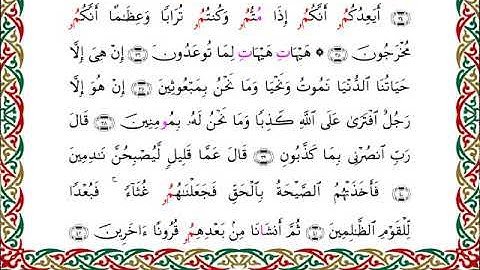 أَيَعِدُكُمُۥ أَنَّكُمُۥ إِذَا مُتُّمُۥ وَكُنتُمُۥ تُرَابٗا وَعِظَٰمًا أَنَّكُمُۥ
مُخۡرَجُونَ ۞ هَيۡهَاتِ هَيۡهَاتِ لِمَا تُوعَدُونَ إِنۡ هِيَ إِلَّا
حَيَاتُنَا ٱلدُّنۡيَا نَمُوتُ وَنَحۡيَا وَمَا نَحۡنُ بِمَبۡعُوثِينَ إِنۡ هُوَ إِلَّا
رَجُلٌ ٱفۡتَرَىٰ عَلَى ٱللَّهِ كَذِبٗا وَمَا نَحۡنُ لَهُۥ بِمُومِنِينَ قَالَ
رَبِّ ٱنصُرۡنِي بِمَا كَذَّبُونِ قَالَ عَمَّا قَلِيلٖ لَّيُصۡبِحُنَّ نَٰدِمِينَ
فَأَخَذَتۡهُمُ ٱلصَّيۡحَةُ بِٱلۡحَقِّ فَجَعَلۡنَٰهُمُۥ غُثَآءٗۚ فَبُعۡدٗا
لِّلۡقَوۡمِ ٱلظَّٰلِمِينَ ثُمَّ أَنشَانَا مِنۢ بَعۡدِهِمُۥ قُرُونًا ءَاخَرِينَ